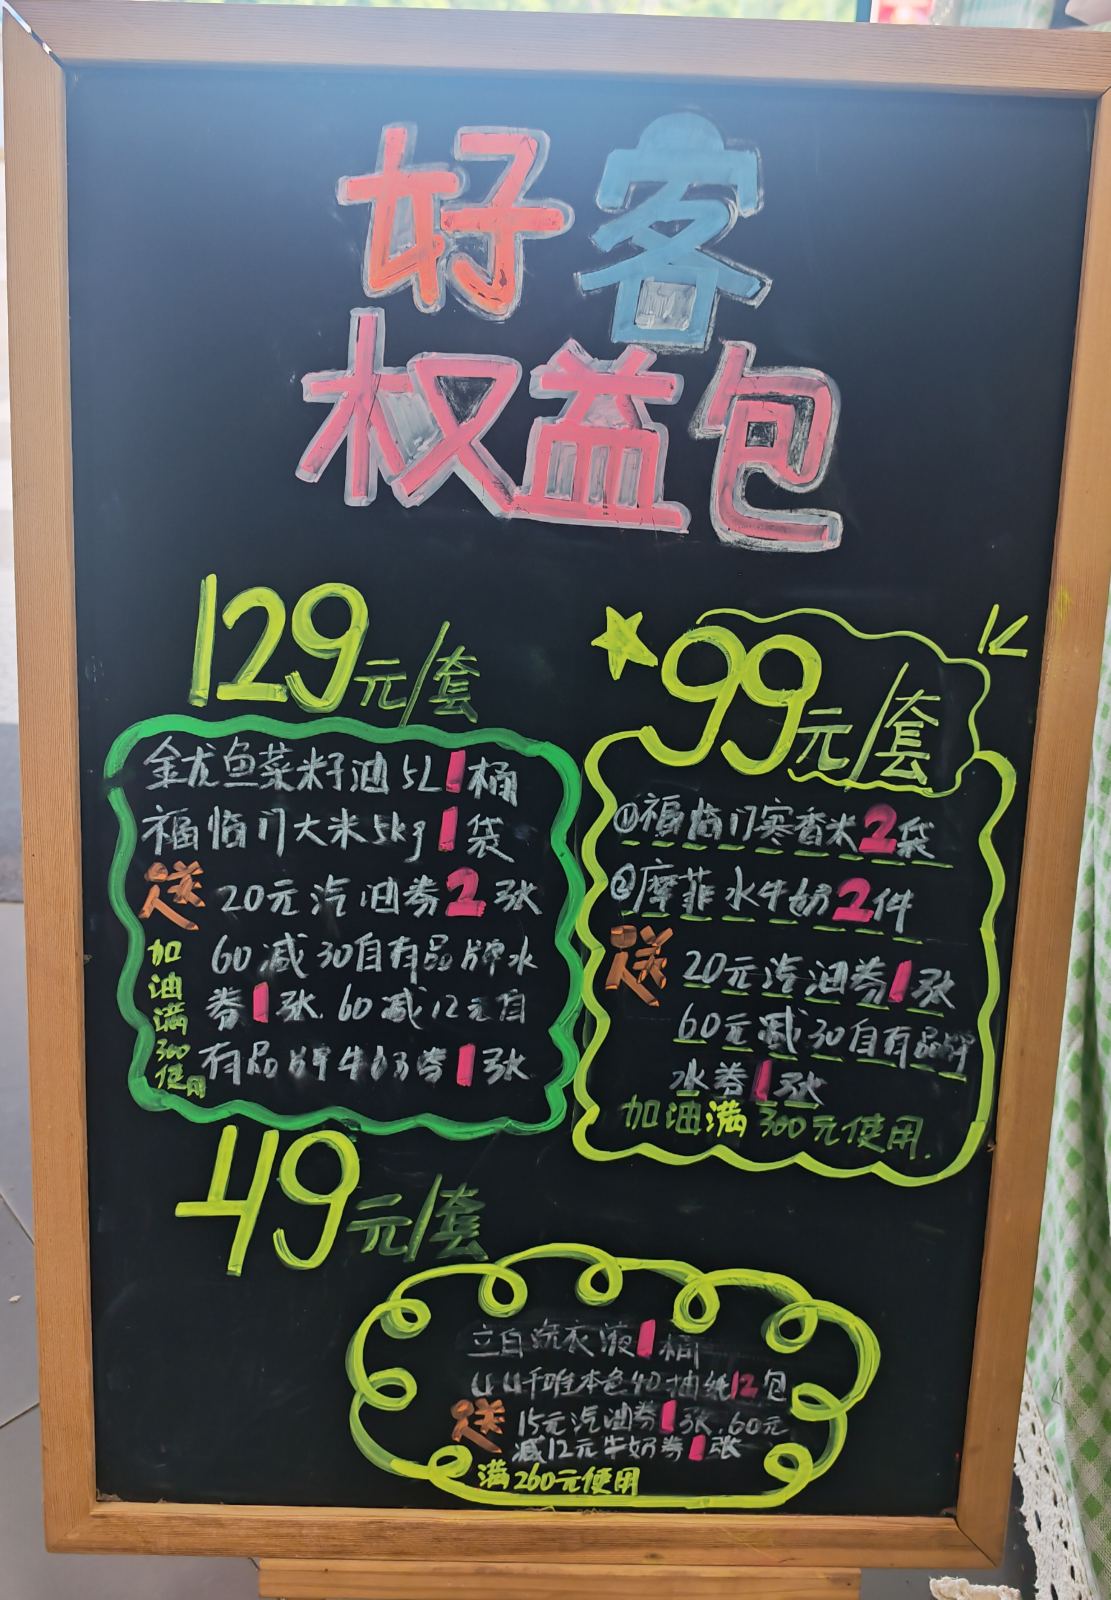 好客
权益包
129元/套
金龙鱼菜籽油5L1桶
福临门大米5kg1袋
送 20元汽油券2张
60减30自有品牌水
券1张.60减12元自
有品牌牛奶券1张
加油满300使用
99元/套
①福临门寒香米2袋
②摩菲水牛奶2件
送 20元汽油券1张
60元减30自有品牌
水券1张
加油满300元使用.
49元/套
立白洗衣液1桶
本色40抽纸12包
送 15元汽油券1张.60元
减12元牛奶券1张
满260元使用